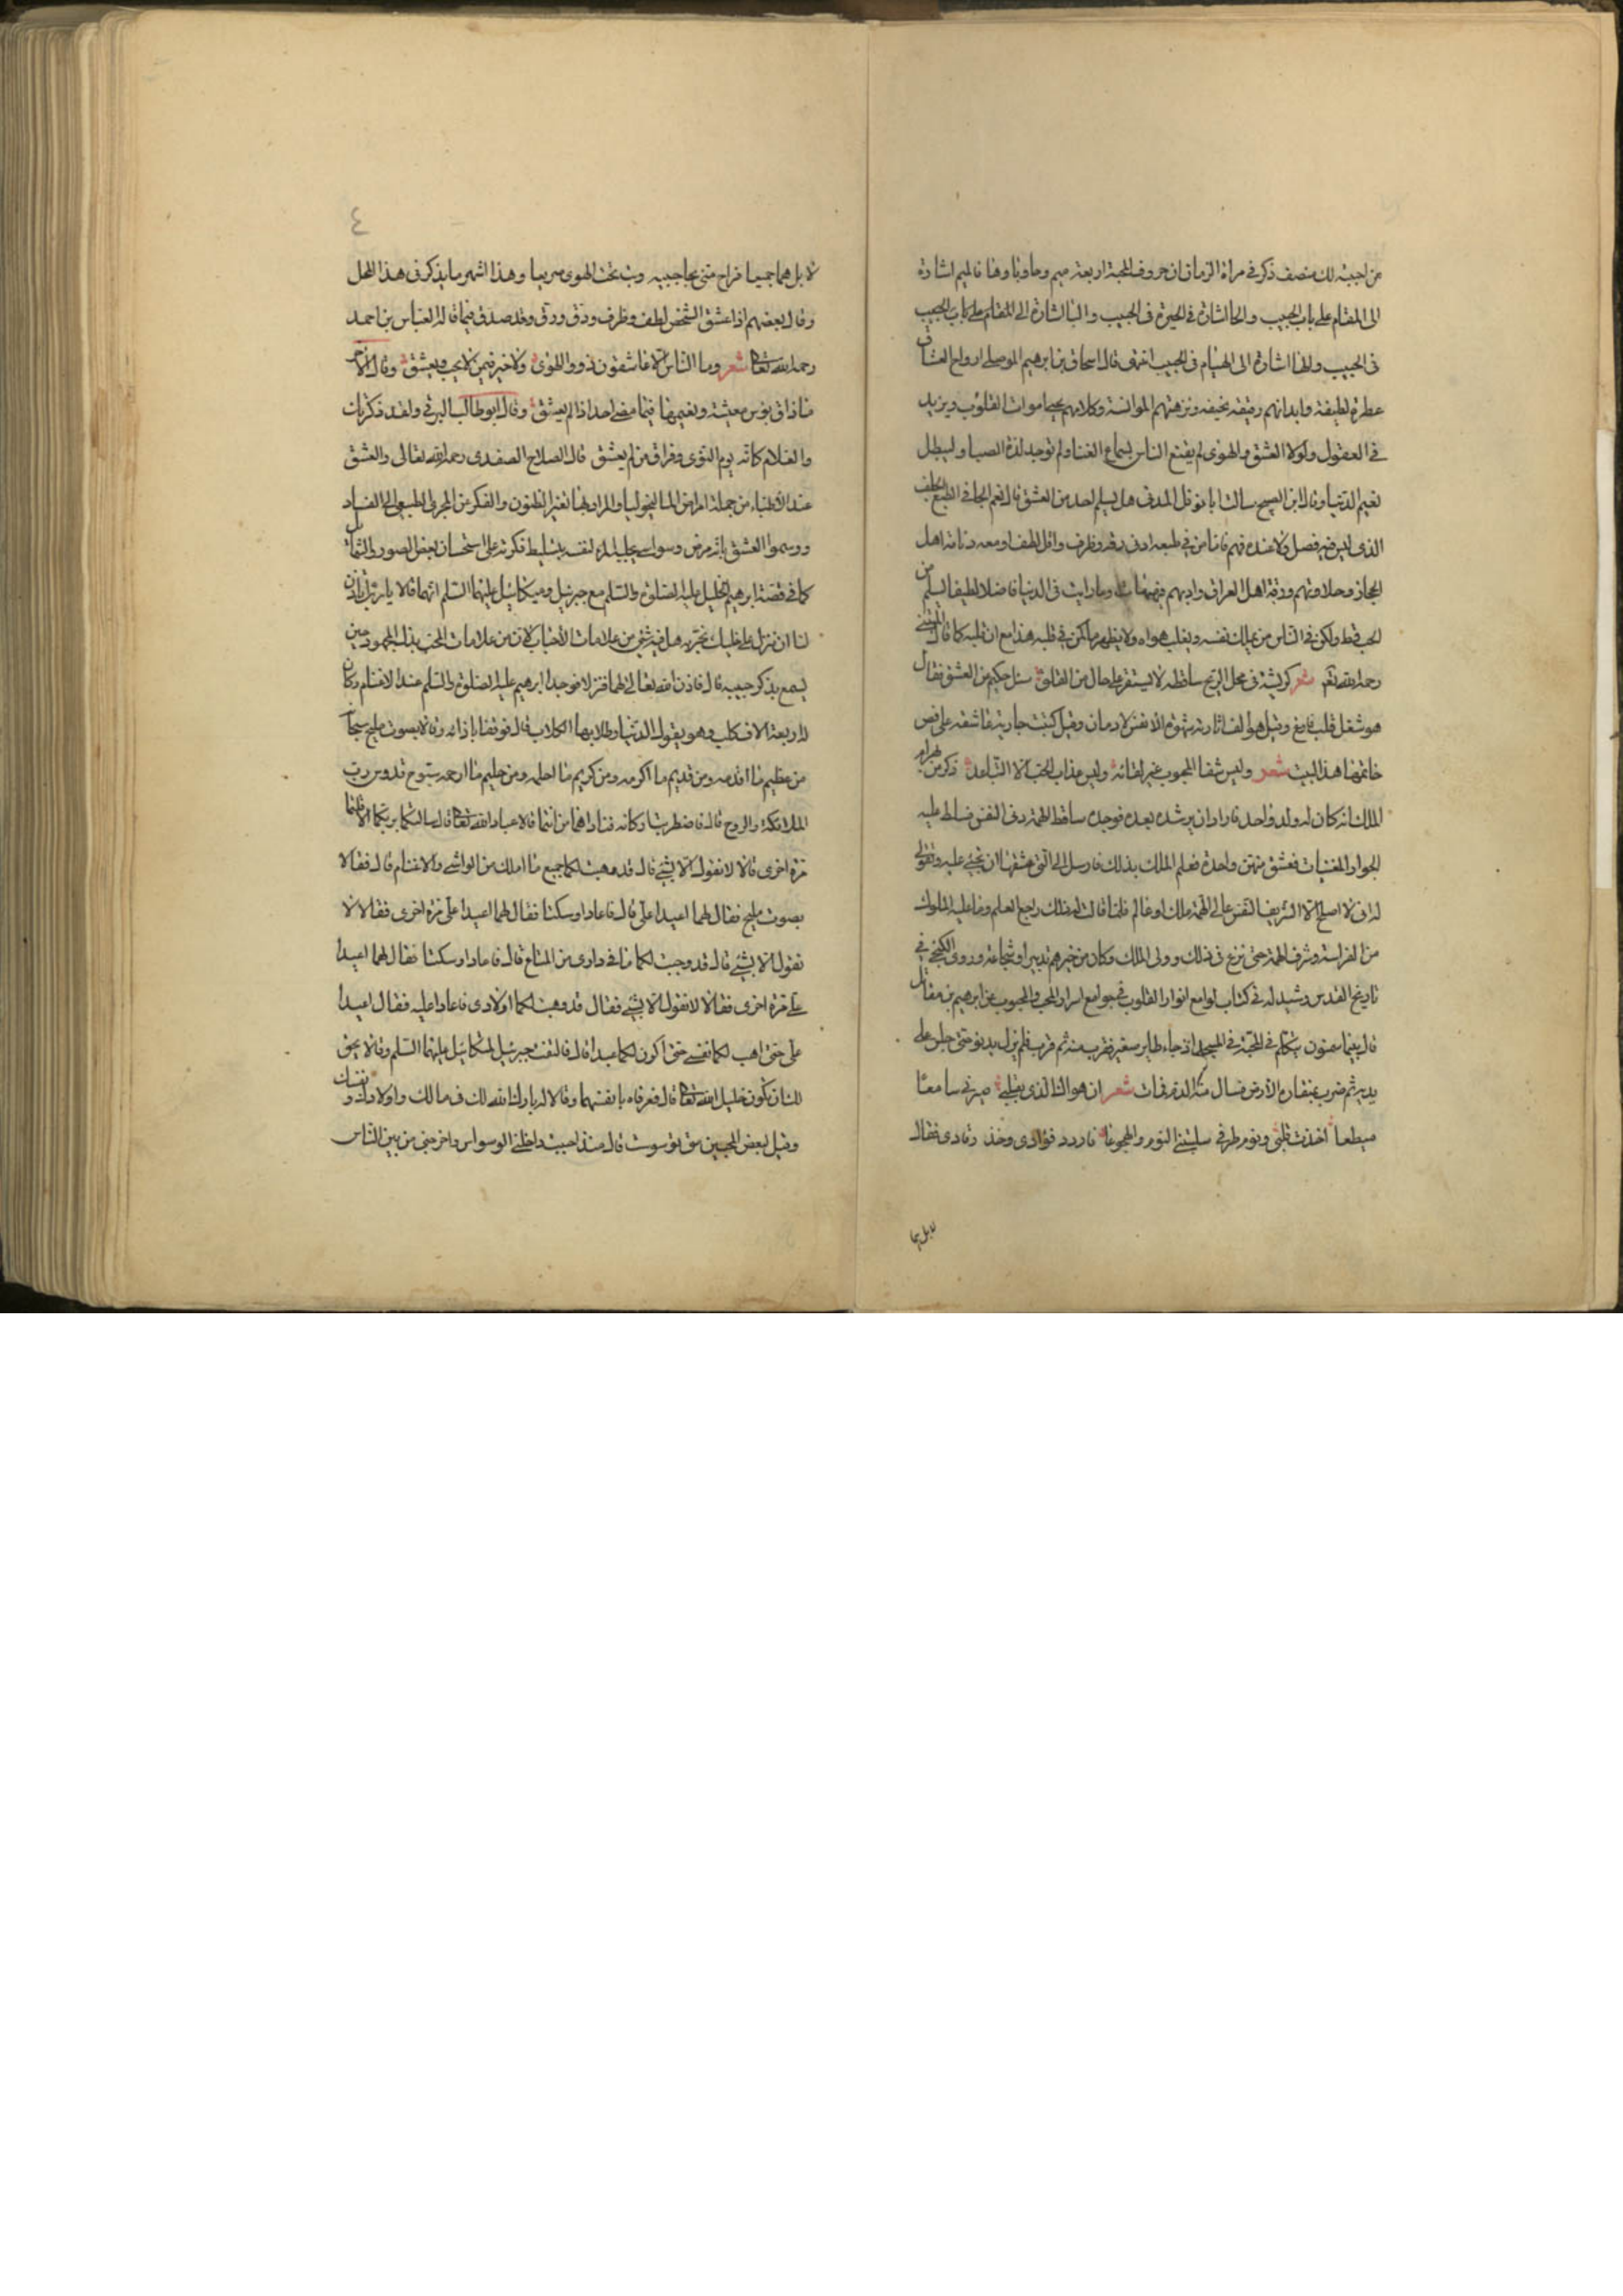 من اجبته لك منصف ذكر في مراة الزمان ان حروف المحبة اربعة ميم وحا وبا وها فالميم اشارة
الى المقام على باب الحبيب والحا اشارة في الحيرة في الحبيب والبا اشارة الى المقام على باب الحبيب
في الحبيب والها اشارة الى الهيام في الحبيب انتهى قال اسحاق بن ابرهيم الموصلي ارواح العشاق
عطرة لطيفة وابدانهم رقيقة نحيفة ونزهتهم الموانسة وكلامهم يحيى اموات القلوب ويزيد
في العقول ولولا العشق والهوى لم يقنع الناس بسماع الغنا ولم توجد لذة الصبا ولبطل
نعيم الدنيا وقال ابن سالت ابا نوفل المدني هل يسلم احد من العشق قال نعم الجافي الطبع الجلف
الذي ليس فيه فضل ولا عنده فهم فاما من في طبعه ادنى رقة وظرف واقل لطف او معه دماثة اهل
الحجاز وحلاوتهم ورقة اهل العراق وادبهم فهيهات وما رايت في الدنيا فاضلا لطيفا سلم من
الحب قط ولكن في الناس من يملك نفسه ويغلب هواه ولا يظهر ما يكن في قلبه هذا مع ان قلبه كما قال
رحمه الله تعه شعر كريشة في محل الريح ساقطة لا يستقر على حال من القلق سئل حكيم من العشق فقال
هو شغل قلب فارغ وقيل هو وقيل كتبت جارية عاشقة على فص
خاتمها هذا البيت شعر وليس شفا المحبوب غير لقائه وليس عذاب الحب الا التباعد ذكر من بهرام
الملك انه كان له ولد واحد فاراد ان يرشده بعده فوجده ساقط الهمة دني النفس فسلط عليه
الجوار المغنيات فعشق منهن واحدة فعلم الملك بذلك فارسل الى التي عشقها ان تجني عليه وتقولي
له اني لا اصلح الا لشريف النفس عالي الهمة ملك او عالم فلما قالت له ذلك راجع العلم وما عليه الملوك
من الفراسة وشرف الهمة حتى برع في ذلك وولي الملك وكان من خيرهم تدبيرا وشجاعة وروى في
تاريخ القدس في كتاب لوامع انوار القلوب في جوامع اسرار المحب والمحبوب عن ابرهيم بن
قال بينما سمنون يتكلم في المحبة في المسجد اذ جاء طاير صغير فقرب منه ثم قرب فلم يزل يدنو حتى جلس على
يديه ثم ضرب بمنقاره الارض فسال منه الدم فمات شعر ان هواك الذي بقلبي صيرني سامعا
مطيعا اخذت قلبي ونوم طرفي سلبتني النوم والهجوعا فاردد فوادي وخذ رقادي فقال
لا بل هما
٤
لا بل هما جميعا فراح مني وبت تحت الهوى صريعا وهذا اشهر ما يذكر في هذا المحل
وقال بعضهم اذا عشق الشخص لطف وظرف ودق ورق وقد صدق فيما قال العباس بن احمد
رحمه الله تعالى شعر وما الناس الا عاشقون ذوو الهوى ولا خير فيمن لا يحب ويعشق وقال الاخر
ما ذاق بؤس معيشة ونعيمها فيما مضى احد اذا لم يعشق وقال ابو طالب البرقي ولقد ذكرتك
والظلام كانه يوم النوى وفراق من لم يعشق قال الصلاح الصفدي رحمه الله تعالى والعشق
عند الاطباء من جملة امراض الماليخوليا والمراد بها تغير الظنون والفكر عن المجرى الطبيعي الى الفساد
ورسموا العشق بانه مرض وسواسي يجلبه المرء لنفسه بتسليط فكرته على استحسان بعض الصور والشمائل
كما في قصة ابرهيم الخليل عليه الصلوة والسلم مع جبرئيل وميكائيل عليهما السلم انهما قالا يا رب ائذن
لنا ان ننزل على خليلك نجربه هل فيه شي من علامات الاحباب لان من علامات المحب بذل المجهود حين
يسمع بذكر حبيبه قال فاذن الله تعالى لهما فنزلا فوجدا ابرهيم عليه الصلوة والسلم عند الاغنام وكان
له اربعة الاف كلب وهو يقول الدنيا وطلابها الكلاب قال فوقفا باذانه وقالا بصوت مليح سبحان
من عظيم ما اقدمه ومن قديم ما اكرمه ومن كريم ما احلمه ومن حليم ما ارحمه سبوح قدوس رب
الملائكة والروح قال فاضطربت اركانه فناداهما من انتما قالا عباد الله تعالى قال سالتكما بربكما الا قلتما
مرة اخرى قالا لا نقول الا بشيء قال قد وهبت لكما جميع ما املك من المواشي والاغنام قال فقالا
بصوت مليح فقال لهما اعيدا علي قال فاعادا وسكتا فقال لهما اعيدا علي مرة اخرى فقالا لا
نقول الا بشيء قال قد وهبت لكما ما في داري من المتاع قال فاعادا وسكتا فقال لهما اعيدا
علي مرة اخرى فقالا لا نقول الا بشيء فقال قد وهبت لكما اولادي فاعادا عليه فقال اعيدا
علي حتى اهب لكما نفسي حتى اكون لكما عبدا قال فالتفت جبرئيل لميكائيل عليهما السلم وقالا يحق
لك ان تكون خليل الله تعالى قال فعرفاه بانفسهما وقالا له بارك الله لك في مالك واولادك ونفسك
وقيل لبعض المحبين متى توسوست قال منذ احببت داخلني الوسواس واخرجني من بين الناس